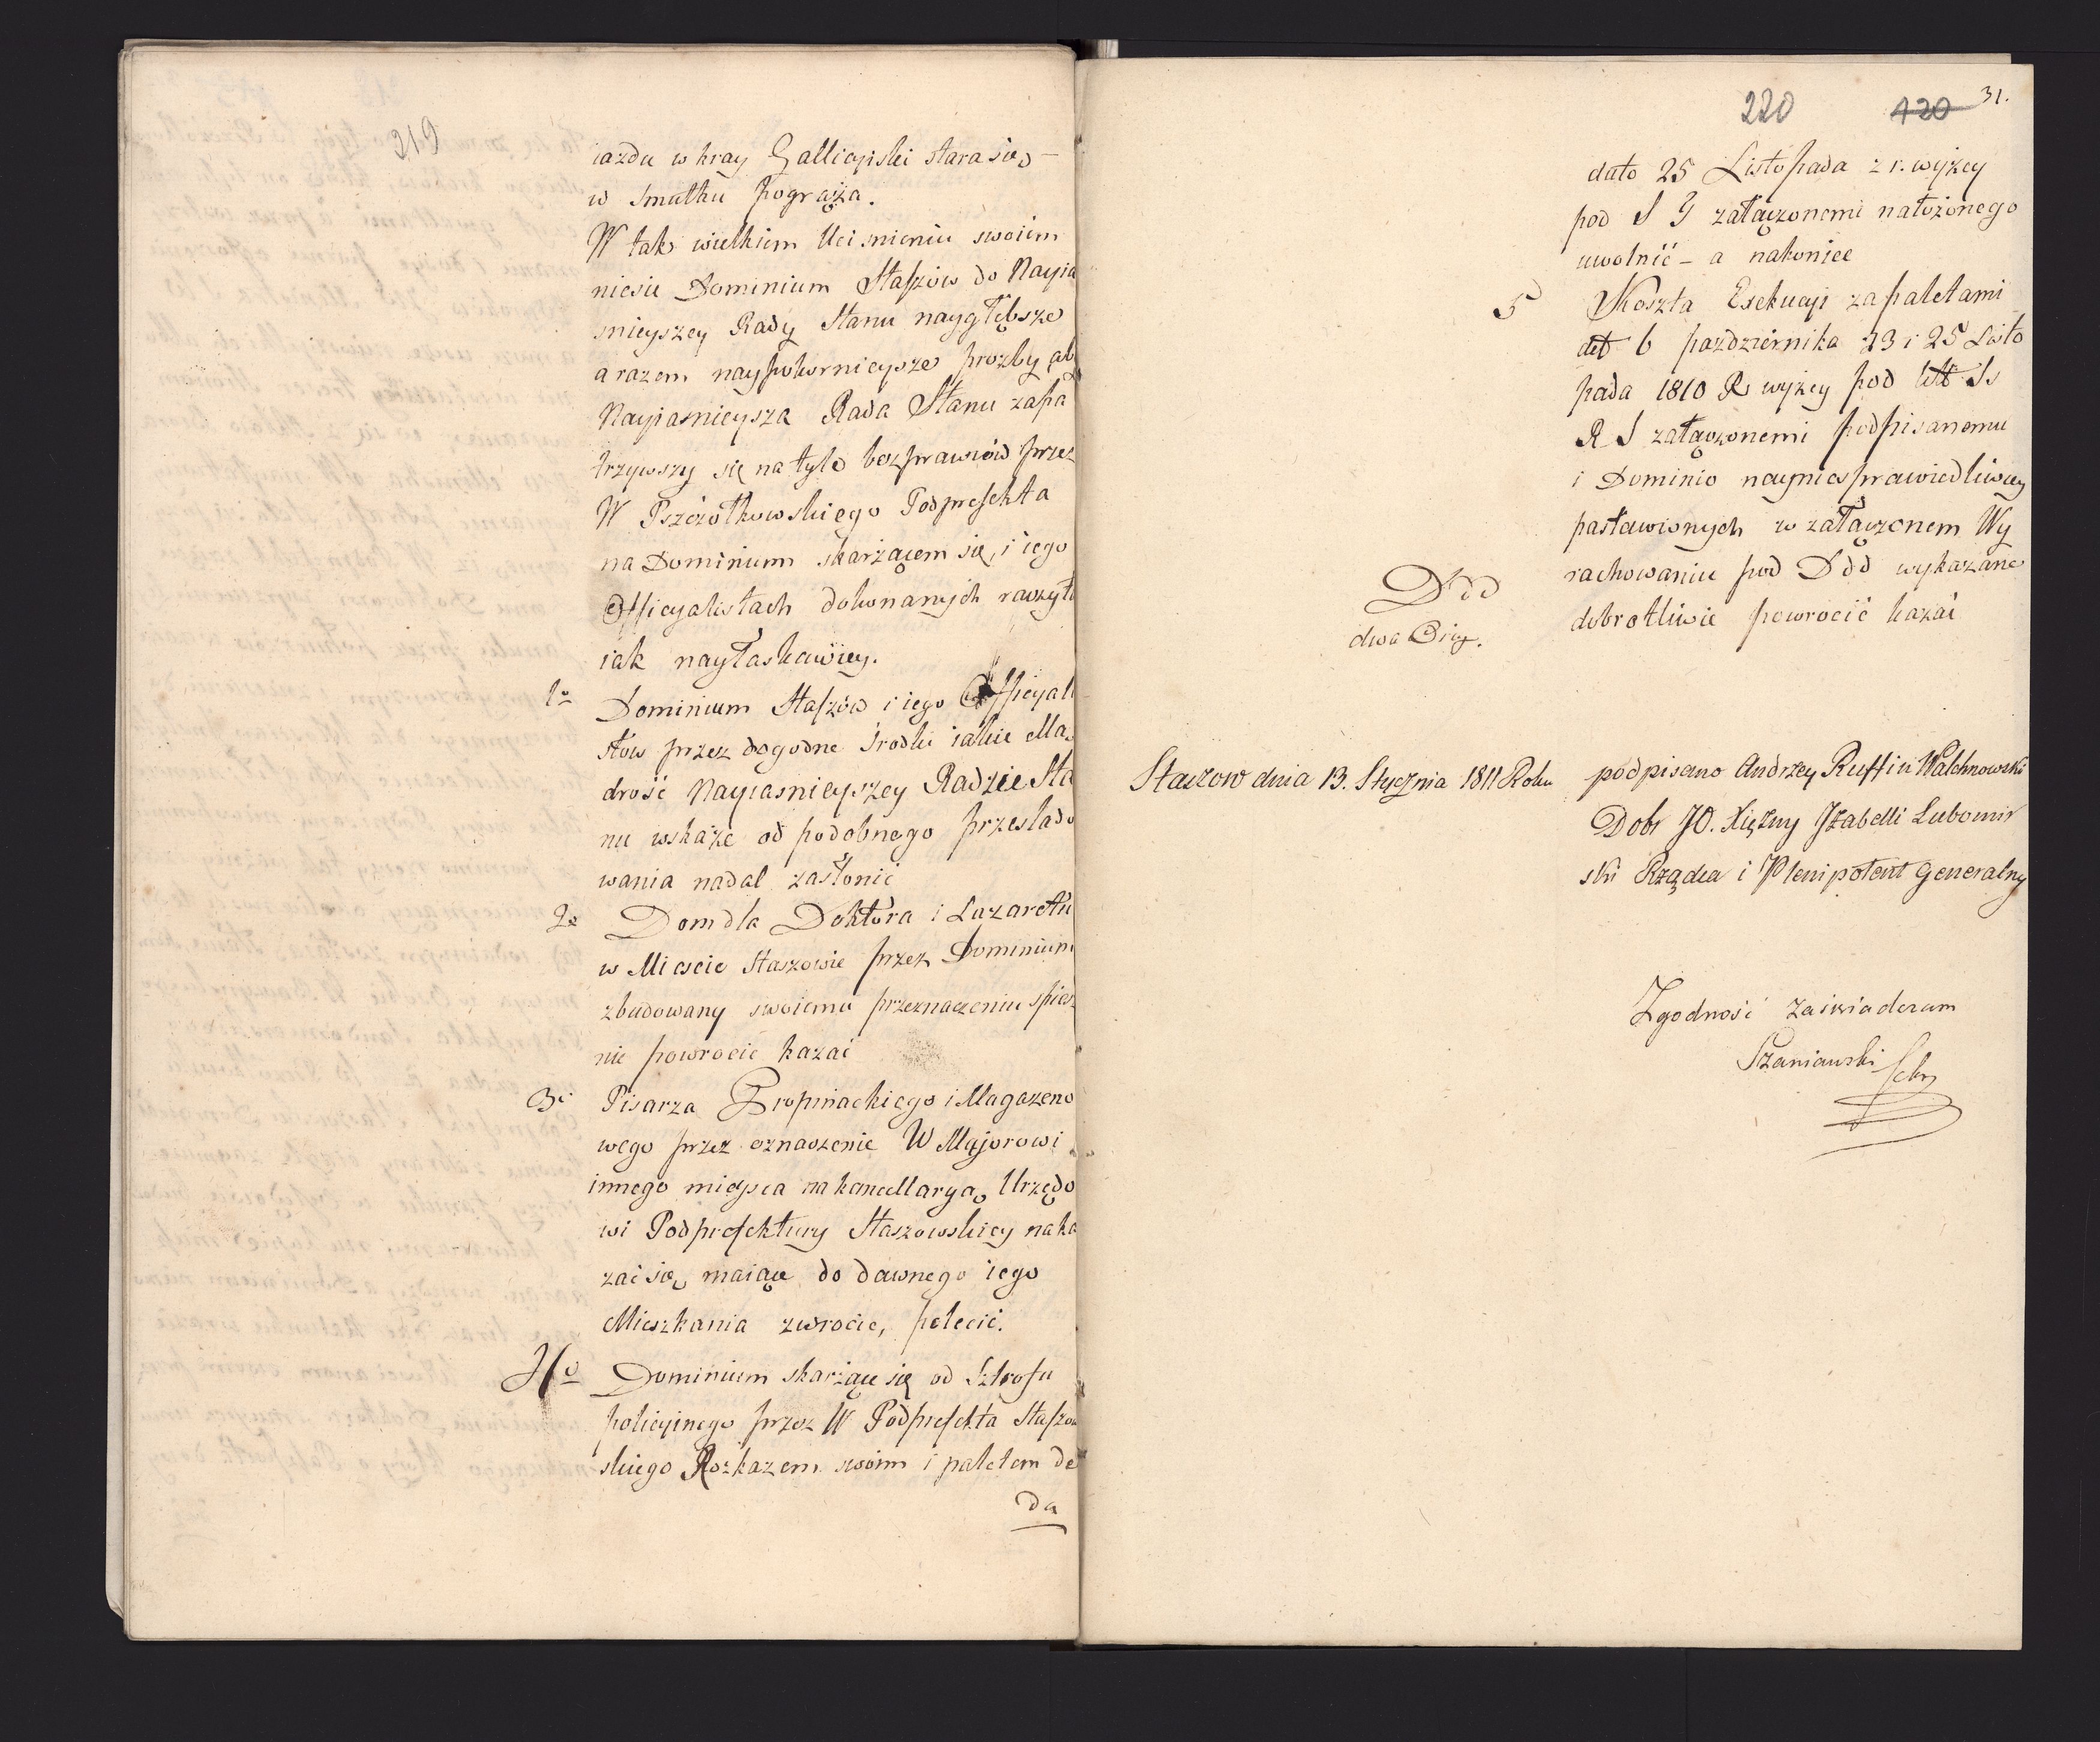 219
iazdu w kray Galliciyski stara się –
w smutku pogrąża.
W tak wielkiem Uciśnieniu swoiem
niesie Dominium Staszów do Nayia
śnieyszey Rady Stanu naygłębsze
a razem naypokornieysze prozby ab
Nayiaśnieysza Rada Stanu zapa
trzywszy się na tyle bezprawiów przez
W Pszczołkowskiego Podprefekta
na Dominium skarżącem się, i iego
Officyalistach dokonanych raczyła
iak nayłaskawiey.
1o Dominium Staszów i iego Officyali
stów przez dogodne środki iakie Mą
drość Nayiaśnieyszey Radzie Sta
nu wskaże od podobnego prześlado
wania nadal zasłonić
2o Dom dla Doktora i Lazaretu
w Mieście Staszowie przez Dominium
zbudowany swoiemu przeznaczeniu spies
nie powrócić kazać
3o Pisarza Propinackiego i Magazeno
wego przez oznaczenie W Majorowi
innego mieysca na kancellaryą Urzędo
wi Podprefektury Staszowskiey naka
zać się maiące do dawnego iego
Mieszkania zwrócić, polecić.
4o Dominium skarżące się od Sztrofu
policyinego przez W Podprefekta Staszow
skiego Rozkazem swoim i paletem de
da
220 420 31.
dato 25 Listopada z r. wyżey
pod S Y załączonemi nałożonego
uwolnić – a nakoniec
5 Koszta Exekucyi za paletami
det 6 października 23 i 25 Listo
pada 1810 R wyżey pod Litt Ss
R S załączonemi podpisanemu
i Dominio nayniesprawiedliwiey
pastawionych w załączonem Wy
rachowaniu pod Ddd wykazane
dobrotliwie powrócić kazać
Ddd
dwa Orig.
Staszow dnia 13. Stycznia 1811 Roku
podpisano Andrzey Ruffin Walchnowski
Dobr JO. Xiężny Izabelli Lubomir
ski Rządca i Plenipotent Generalny
Zgodność zaświadczam
Szaniawski Sekr